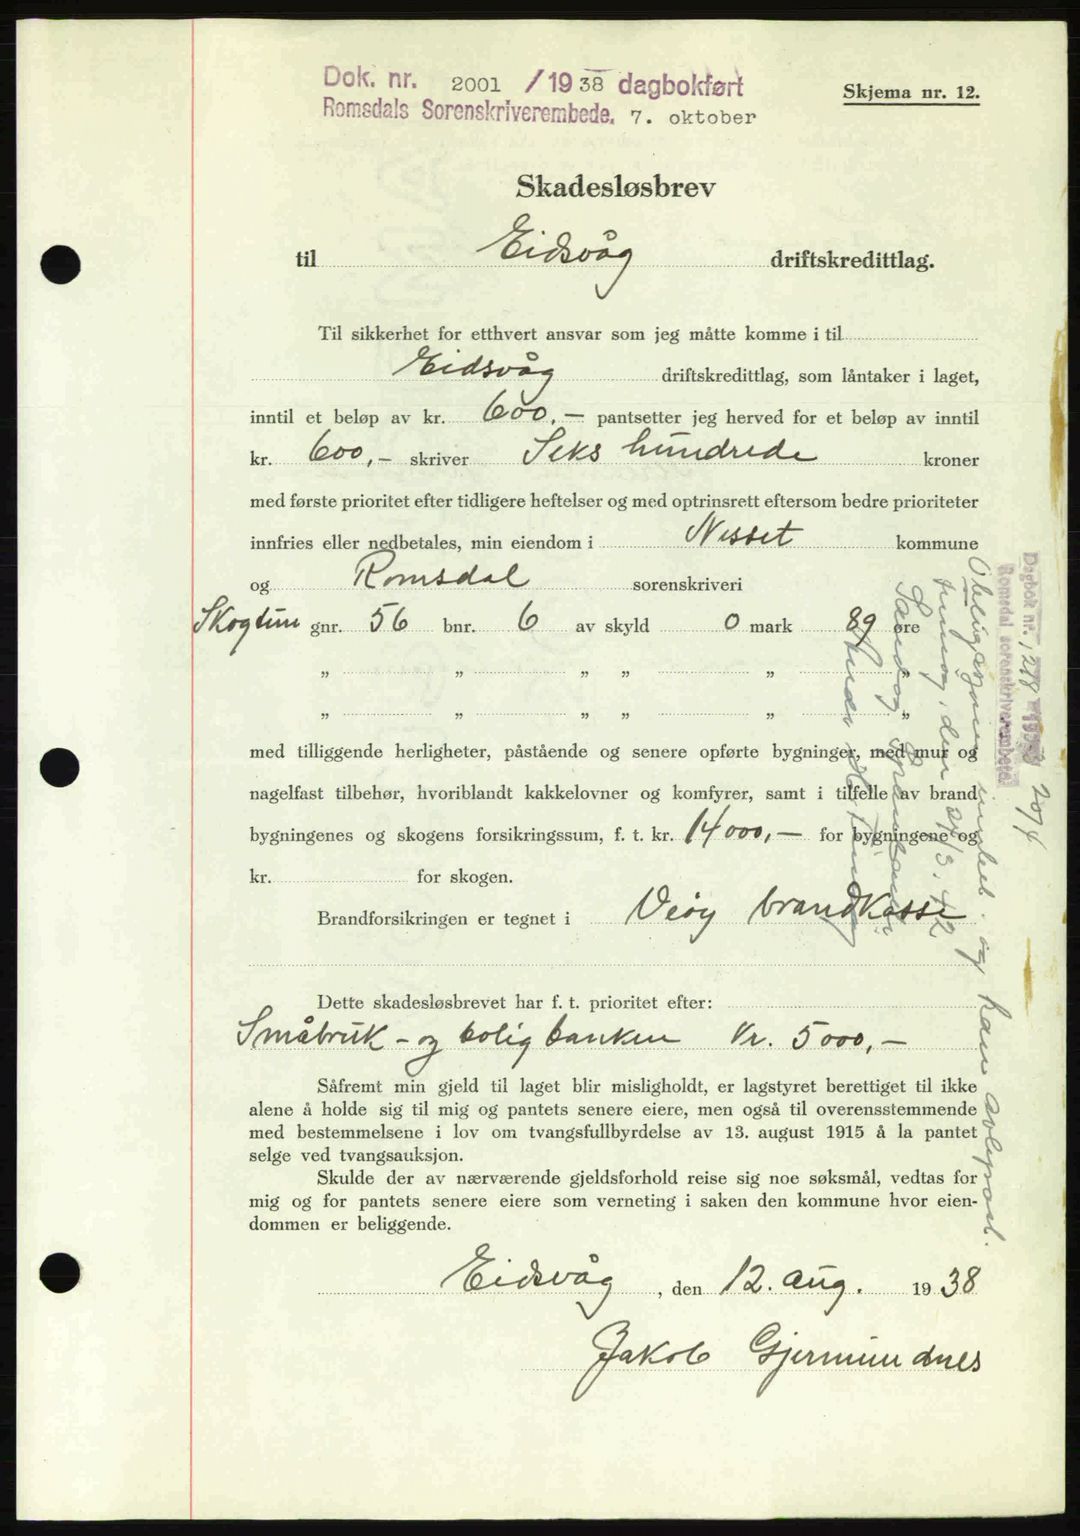 Dok. nr. 2001 /1938 dagbokført
Romsdals Sorenskriverembede. 7. oktober
Skjema nr. 12.
Skadesløsbrev
til Eidsvåg driftskredittlag.
Til sikkerhet for etthvert ansvar som jeg måtte komme i til
Eidsvåg driftskredittlag, som låntaker i laget,
inntil et beløp av kr. 600,- pantsetter jeg herved for et beløp av inntil
kr. 600,- skriver Seks hundrede kroner
med første prioritet efter tidligere heftelser og med optrinsrett eftersom bedre prioriteter
innfries eller nedbetales, min eiendom i Nesset kommune
og Romsdal sorenskriveri
Skogtun gnr. 56 bnr. 6 av skyld 0 mark 89 øre
„ „ „ „ „ „
„ „ „ „ „ „
med tilliggende herligheter, påstående og senere opførte bygninger, med mur og
nagelfast tilbehør, hvoriblandt kakkelovner og komfyrer, samt i tilfelle av brand
bygningenes og skogens forsikringssum, f. t. kr. 14000,- for bygningene og
kr. for skogen.
Brandforsikringen er tegnet i Veøy brandkasse
Dette skadesløsbrevet har f. t. prioritet efter:
Småbruk- og boligbanken kr. 5000,-
Såfremt min gjeld til laget blir misligholdt, er lagstyret berettiget til ikke
alene å holde sig til mig og pantets senere eiere, men også til overensstemmende
med bestemmelsene i lov om tvangsfullbyrdelse av 13. august 1915 å la pantet
selge ved tvangsauksjon.
Skulde der av nærværende gjeldsforhold reise sig noe søksmål, vedtas for
mig og for pantets senere eiere som verneting i saken den kommune hvor eien-
dommen er beliggende.
Eidsvåg, den 12. aug. 1938
Jakob Gjermundnes
Dagbok nr. 1218
Romsdal sorenskriverembede
Obligasjonen og kan avlyses.
den 24/3.42